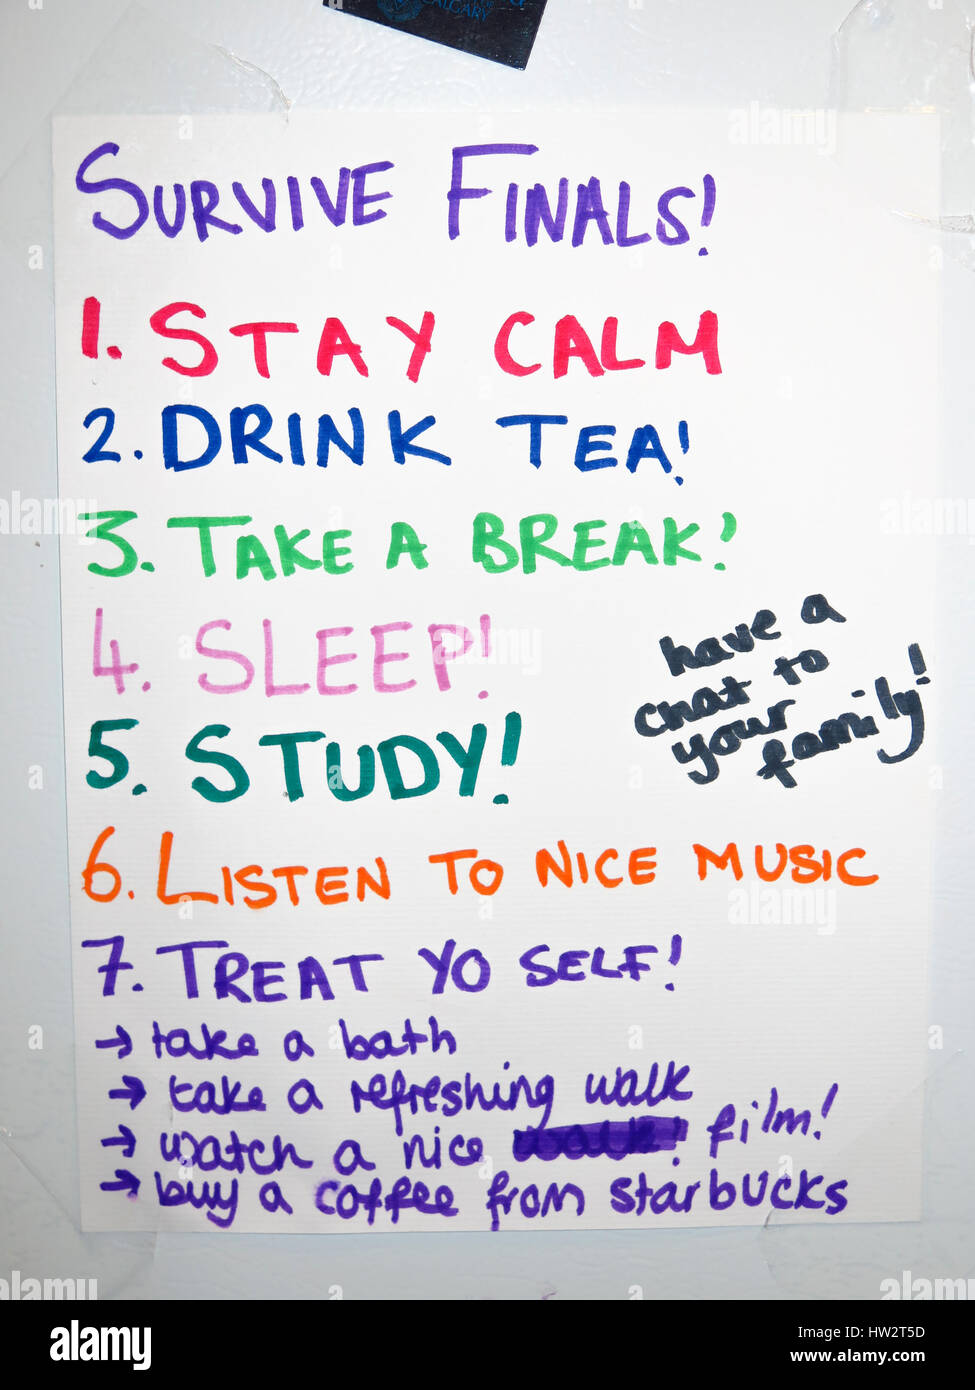 CALGARY
SURVIVE FINALS!
1. STAY CALM
2. DRINK TEA!
3. TAKE A BREAK!
4. SLEEP!
5. STUDY!
have a
chat to
your
family!
6. LISTEN TO NICE MUSIC
7. TREAT YO SELF!
→ take a bath
→ take a refreshing walk
→ watch a nice film!
→ buy a coffee from starbucks
alamy
alamy stock photo
HW2T5D
www.alamy.com